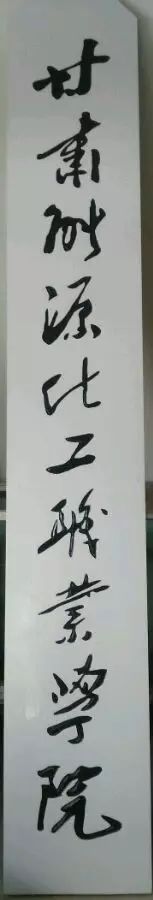 甘肅能源化工職業學院